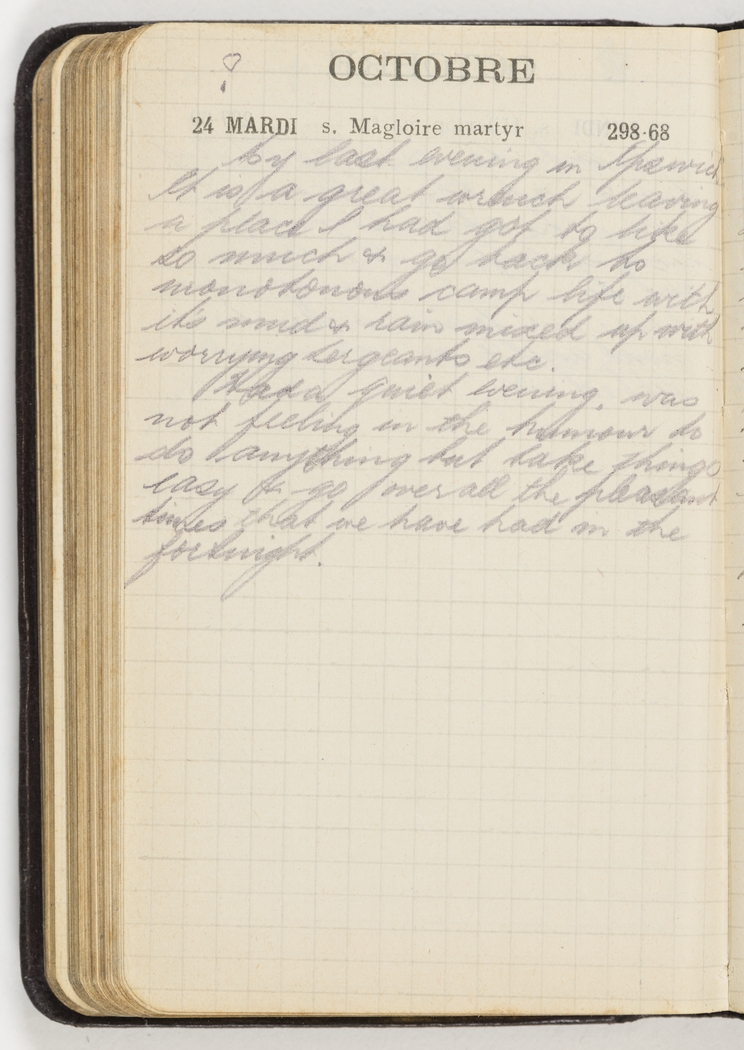 OCTOBRE
24 MARDI s. Magloire martyr 298-68
My last evening in Ipswich
It is a great wrench leaving
a place I had got to like
so much & go back to
monotonous camp life with
it's mud & rain mixed up with
worrying sergeants etc.
Had a quiet evening. was
not feeling in the humour to
do anything but take things
easy & go over all the pleasant
times that we have had in the
fortnight.